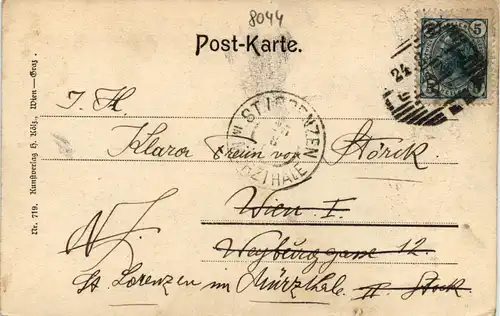 8044
Post-Karte.
5
24
Nr. 719. Kunstverlag H. Kölz, Wien—Graz.
ST. LORENZEN
IM MÜRZTHALE
Klaror Freiin von Störck.
Wien I.
Weyburggasse 12.
St. Lorenzen im Mürzthale II. Stock